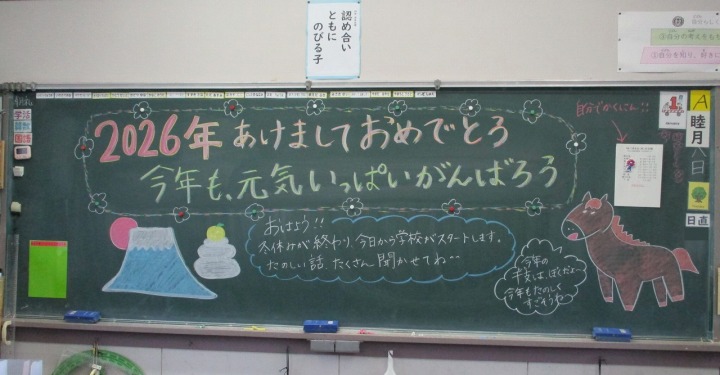 認め合い
ともに
のびる子
2026年 あけましておめでとう
今年も、元気いっぱいがんばろう
おはよう!!
冬休みが終わり、今日から学校がスタートします。
たのしい話、たくさん聞かせてね…
今年の
干支は、ぼくだよ〜
今年もたのしく
すごそうね〜
自分でかくにん!!
学活
国語
A
睦月
日直